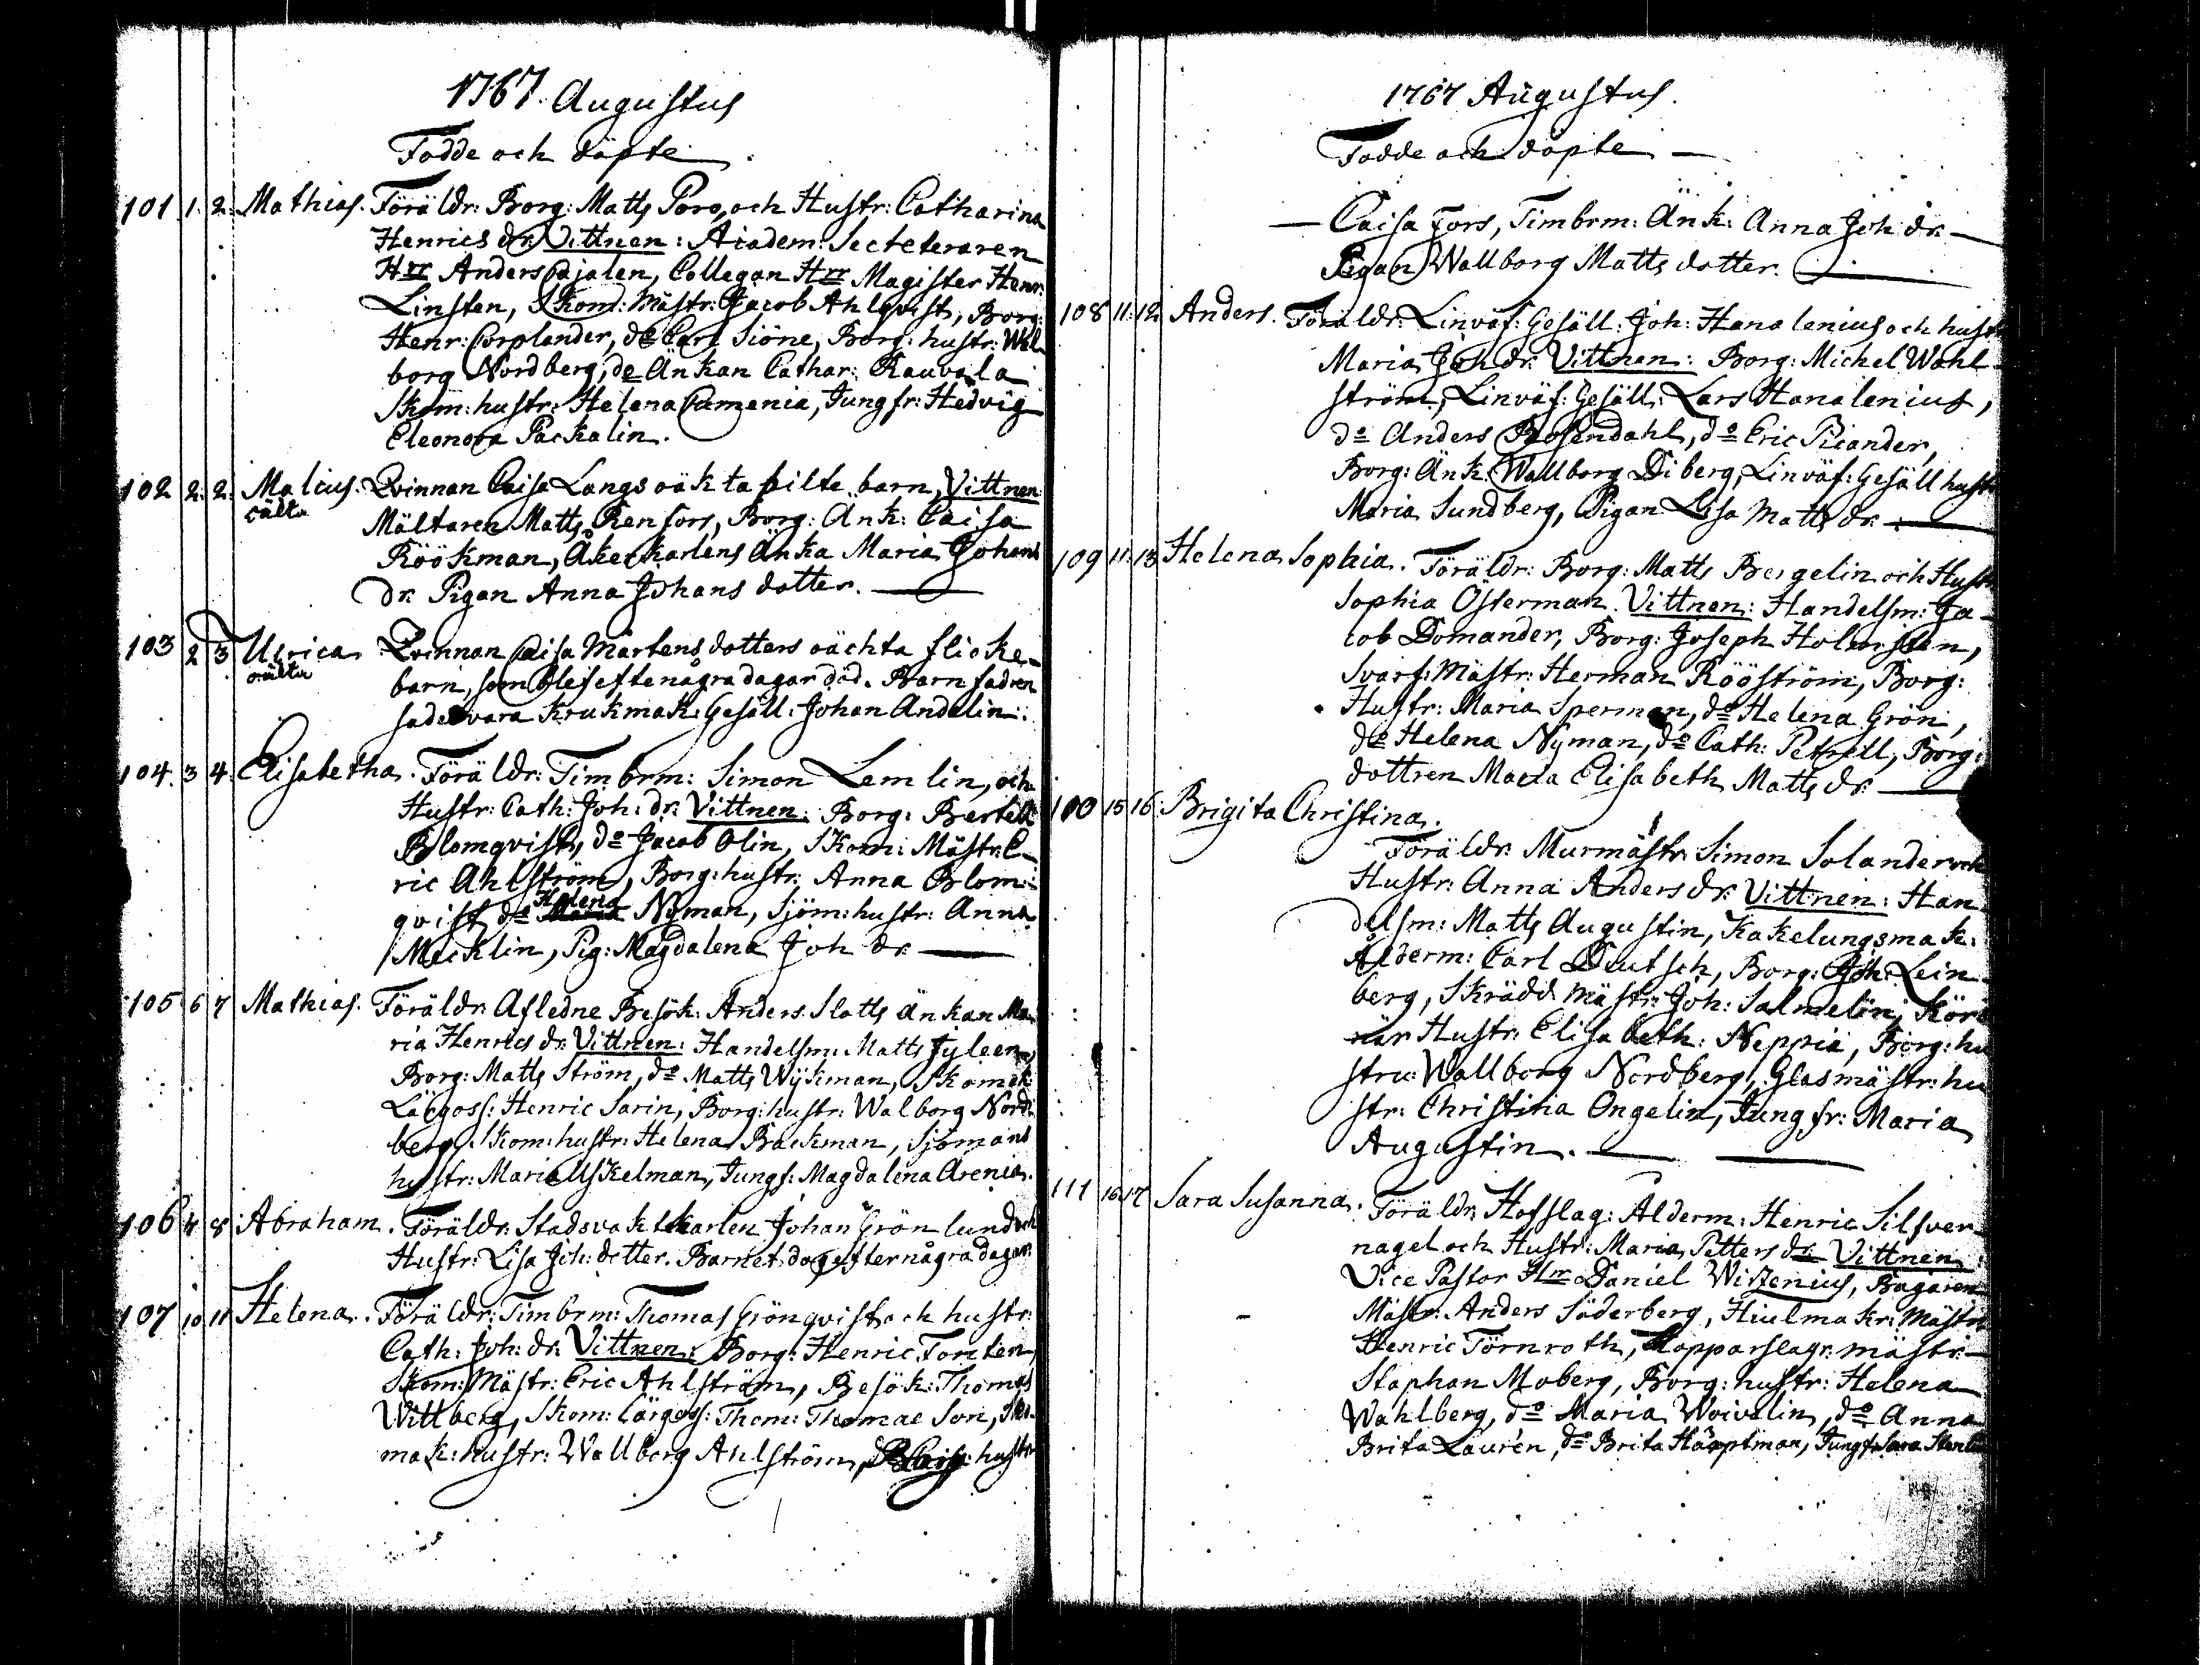 1767. Augustus
Födde och döpte
101 1. 2. Mathias. Föräldr: Borg: Matts Poro, och Hustr: Catharina
Henrics dr. Vittnen: Academ: Secteteraren
Hrr Anders Bjalen, Collegan Hrr Magister Henr:
Linsten, Skom: Mästr: Jacob Ahlqvist, Borg:
Henr: Corplander, do Carl Siöne, Borg: hustr: Wal-
borg Nordberg, do Änkan Cathar: Rauvala
Skom: hustr: Helena Camenia, Jungfr: Hedvig
Eleonora Packalin.
102 2. 2. Malcus. Qvinnan Caisa Langs oäkta pilte barn, Vittnen
oälta Mältaren Matts Renfors, Borg: Änk: Caisa
Röökman, Åkerkarlens Änka Maria Johans
dr. Pigan Anna Johans dotter.
103 2 3 Ulrica Qvinnan Caisa Mårtens dotters oächta flicke-
oälta barn, som blef efte några dagar död. Barn fadren
sades vara Krukmak: Gesäll: Johan Andelin.
104. 3 4. Elisabetha. Föräldr: Timbrm: Simon Lemlin, och
Hustr: Cath: Joh: dr. Vittnen: Borg: Bertell
Blomqvist, do Jacob Olin, Skom: Mästr: E-
ric Ahlström, Borg: hustr: Anna Blom-
qvist, do Helena Nyman, Sjöm: hustr: Anna
Macklin, Pig: Magdalena Joh dr.
105 6 7 Mathias. Föräldr: Afledne Besök: Anders Slotts änkan Ma-
ria Henrics dr. Vittnen: Handelsm: Matts Jyleen,
Borg: Matts Ström, do Matts Wÿkman, Skomak:
Lärgoss: Henric Sarin, Borg: hustr: Walborg Nord-
berg, Skom: hustr: Helena Backman, Sjömans
hustr: Maria Uskelman, Jungf: Magdalena Arenia.
106 7 8 Abraham. Föräldr: Stadsvaktkarlen Johan Grönlund och
Hustr: Lisa Joh: dotter. Barnet dog efter några dagar.
107 10 11 Helena. Föräldr: Timbrm: Thomas Grönqvist och hustr:
Cath: Joh: dr. Vittnen: Borg: Henric Forsten,
Skom: Mästr: Eric Ahlström, Besök: Thomas
Wittberg, Skom: Lärgoss: Thom: Thomae Son, Sko-
mak: hustr: Wallborg Ahlström, hustr
1767 Augustus.
Födde och döpte
Caisa Fors, Timbrm: Änk: Anna Joh dr.
Pigan Wallborg Matts dotter.
108 11. 12. Anders. Föräldr: Linväf: Gesäll: Joh: Hanalenius och hustr
Maria Joh dr. Vittnen: Borg: Michel Wahl-
ström, Linväf: Gesäll: Lars Hanalenius,
do Anders Rosendahl, do Eric Picander,
Borg: Änk: Wallborg Diberg, Linväf: Gesäll hustr
Maria Sundberg, Pigan Lisa Matts dr.
109 11. 13 Helena Sophia. Föräldr: Borg: Matts Bergelin och Hustr
Sophia Österman. Vittnen: Handelsm: Ja-
cob Domander, Borg: Joseph Holmsten,
Svarf: Mästr: Herman Rööström, Borg:
Hustr: Maria Sperman, do Helena Grön,
do Helena Nyman, do Cath: Petrell, Borg:
dottren Maria Elisabeth Matts dr.
100 15 16 Brigita Christina.
Föräldr: Murmästr: Simon Solander och
Hustr: Anna Anders dr. Vittnen: Han
delsm: Matts Augustin, Kakelungsmak:
Ålderm: Carl Deutsch, Borg: Joh: Lein-
berg, Skrädd: Mästr: Joh: Salmelin, Kört
när Hustr: Elisabeth: Neppia, Borg: hu
stru: Wallborg Nordberg, Glasmästr: hu
str: Christina Ongelin, Jungfr: Maria
Augustin.
111 16 17 Sara Susanna. Föräldr: Hofslag: Alderm: Henric Silfver-
nagel och Hustr: Maria Petters dr. Vittnen:
Vice Pastor Hrr Daniel Wirzenius, Bagaren
Mästr: Anders Söderberg, Hiulmakr: Mästr
Henric Törnroth, Kopparslagr: mästr:
Staphan Moberg, Borg: hustr: Helena
Wahlberg, do Maria Woivalin, do Anna
Brita Laurén, do Brita Häpptman, Jungfr Sara